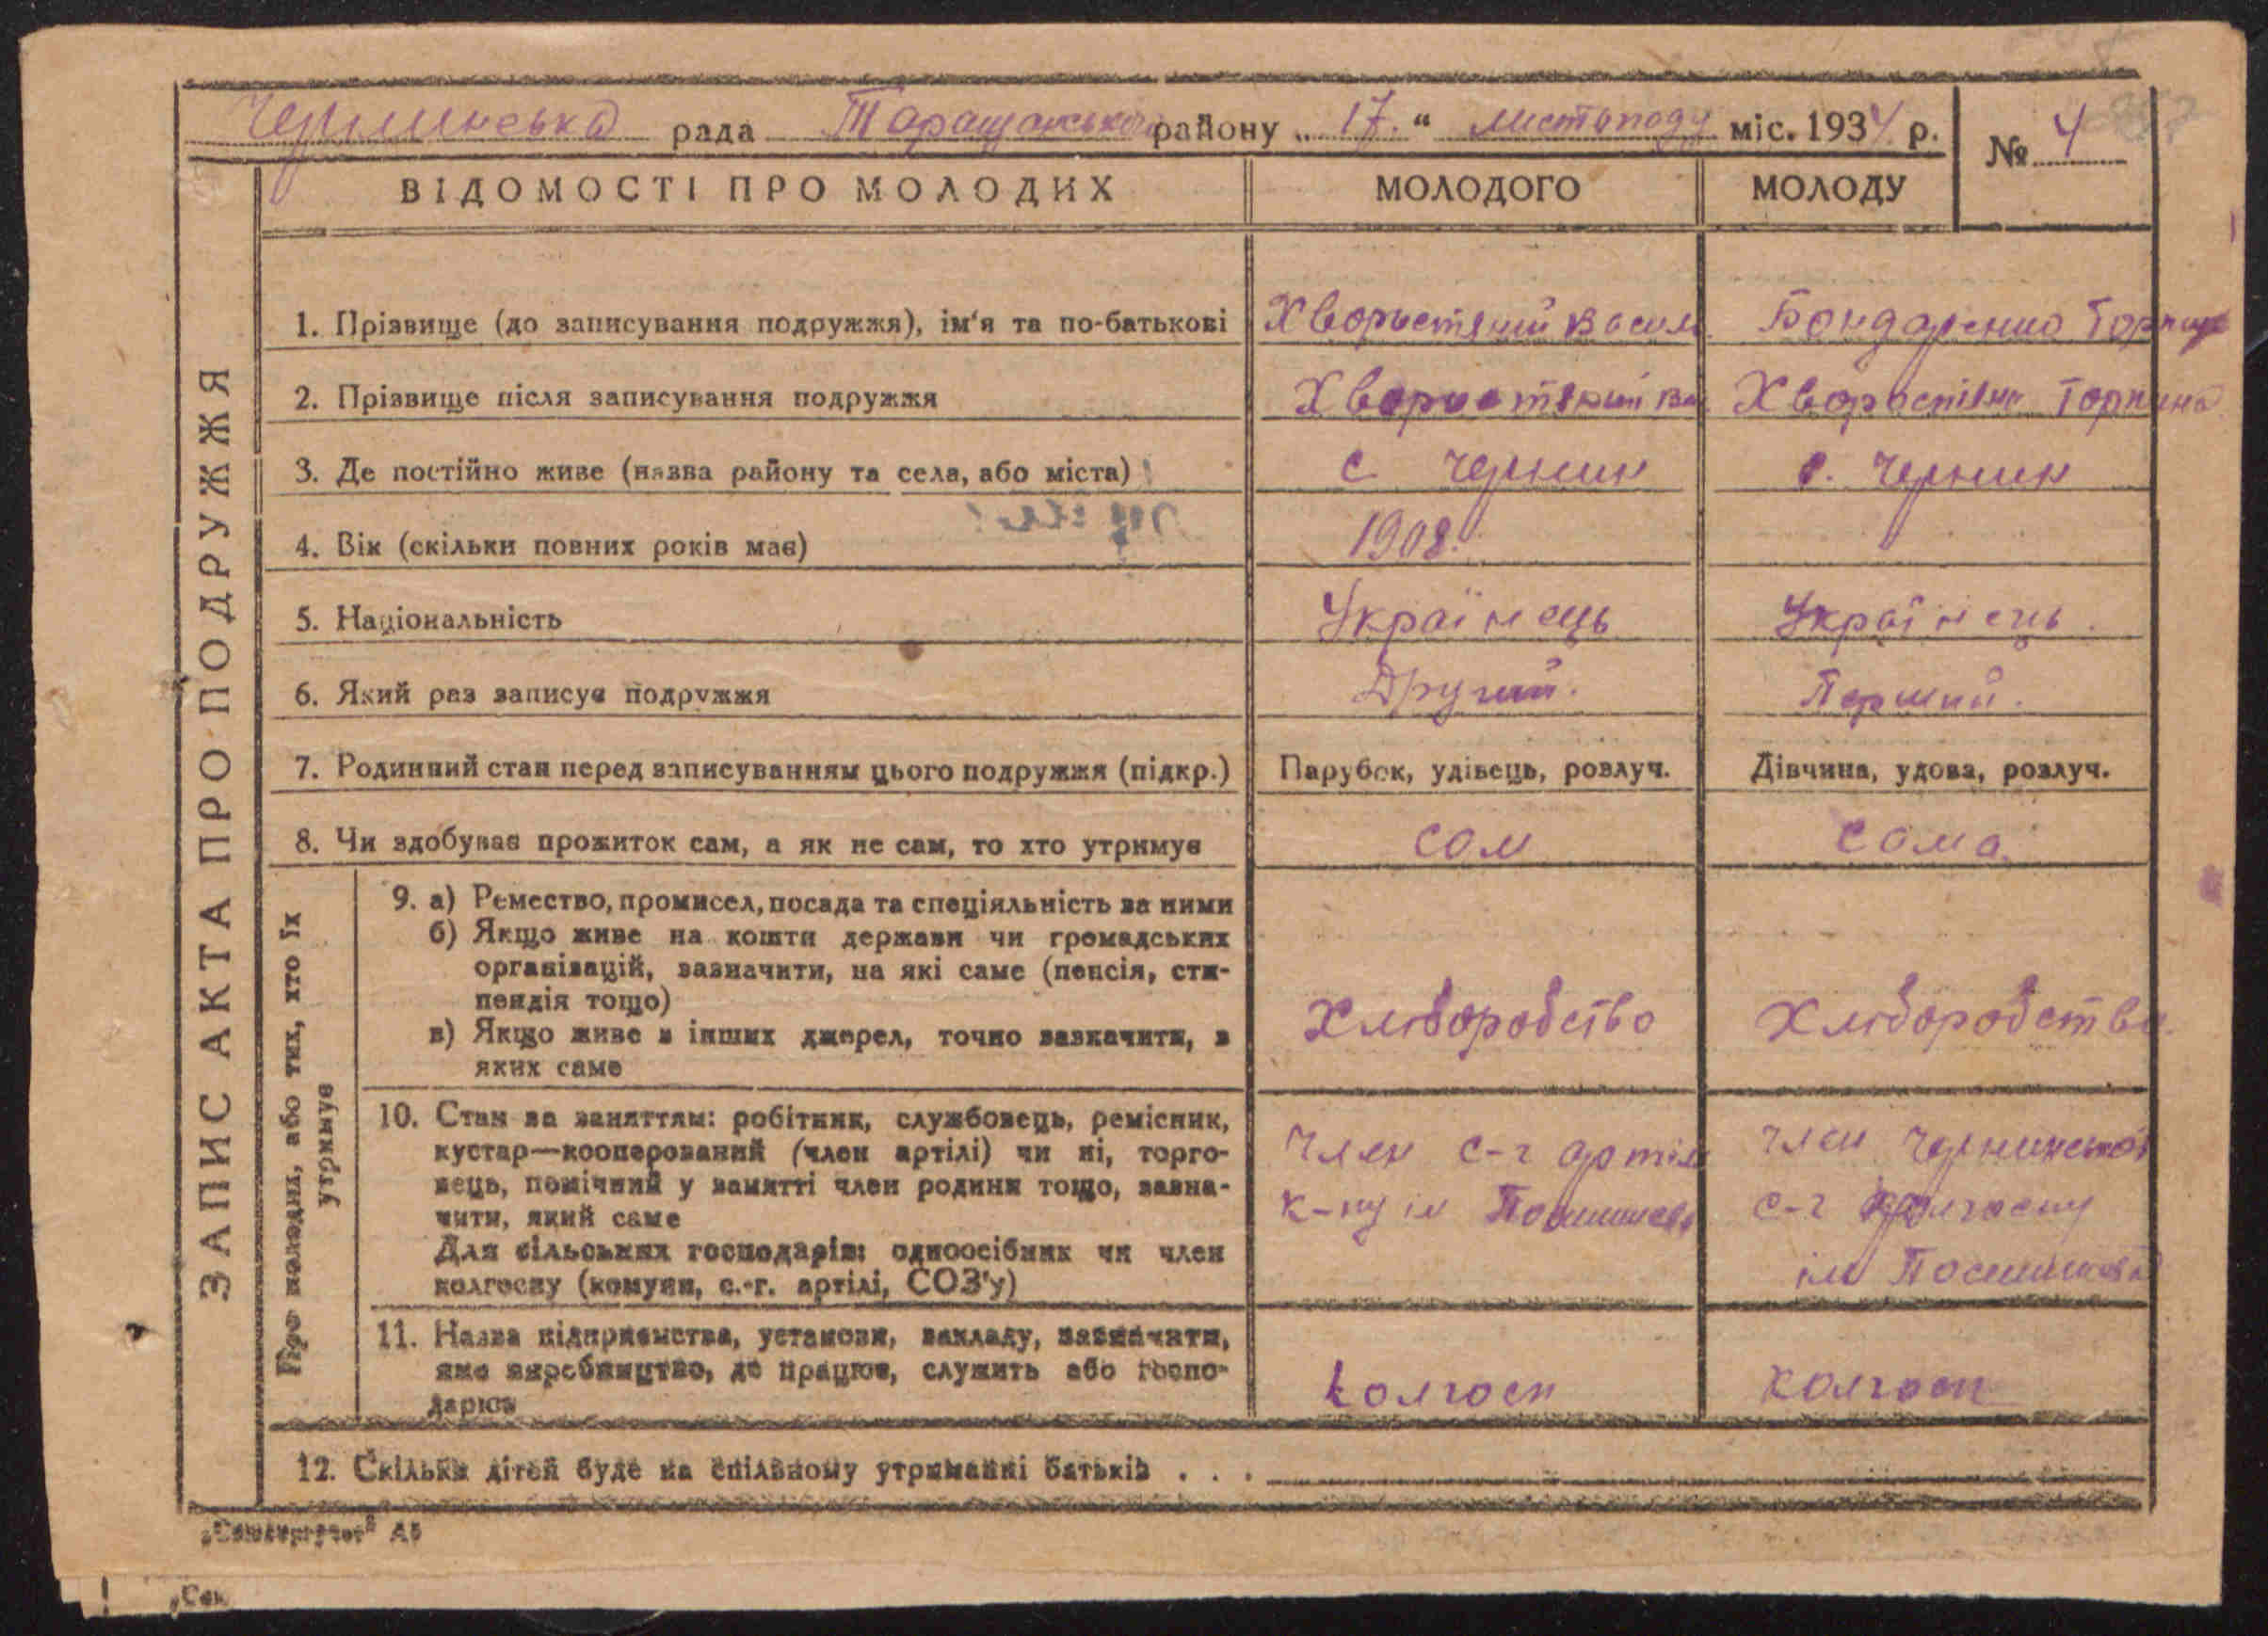 Чернинська рада Таращанського району „ 17. “ листопаду міс. 1934 р.
№ 4
ЗАПИС АКТА ПРО ПОДРУЖЖЯ
ВІДОМОСТІ ПРО МОЛОДИХ МОЛОДОГО МОЛОДУ
1. Прізвище (до записування подружжя), ім'я та по-батькові Хворостяний Васил Бондаренко Горпина
2. Прізвище після записування подружжя Хворостяний Ва Хворостяна Горпина
3. Де постійно живе (назва району та села, або міста) с. Чернин с. Чернин
4. Вік (скільки повних років має) 1908.
5. Національність Українець Українець.
6. Який раз записує подружжя Другий. Перший.
7. Родинний стан перед записуванням цього подружжя (підкр.) Парубок, удівець, розлуч. Дівчина, удова, розлуч.
8. Чи здобуває прожиток сам, а як не сам, то хто утримує сом сома.
Про молодих, або тих, хто їх
утримує
9. а) Ремество, промисел, посада та спеціяльність за ними
б) Якщо живе на кошти держави чи громадських
організацій, зазначити, на які саме (пенсія, сти-
пендія тощо)
в) Якщо живе з інших джерел, точно зазначити, з
яких саме
Хліборобство Хліборобство
10. Стан за заняттям: робітник, службовець, ремісник,
кустар—кооперований (член артілі) чи ні, торго-
вець, помічний у занятті член родини тощо, зазна-
чити, який саме
Для сільських господарів: одноосібник чи член
колгоспу (комуни, с.-г. артілі, СОЗ'у)
Член с-г артіл
к-пу ім Постишева
член Чернинської
с-г колгоспу
ім Постишева
11. Назва підприємства, установи, закладу, зазначити,
яке виробництво, де працює, служить або госпо-
дарює
колгосп колгосп
12. Скільки дітей буде на спільному утриманні батьків . . .